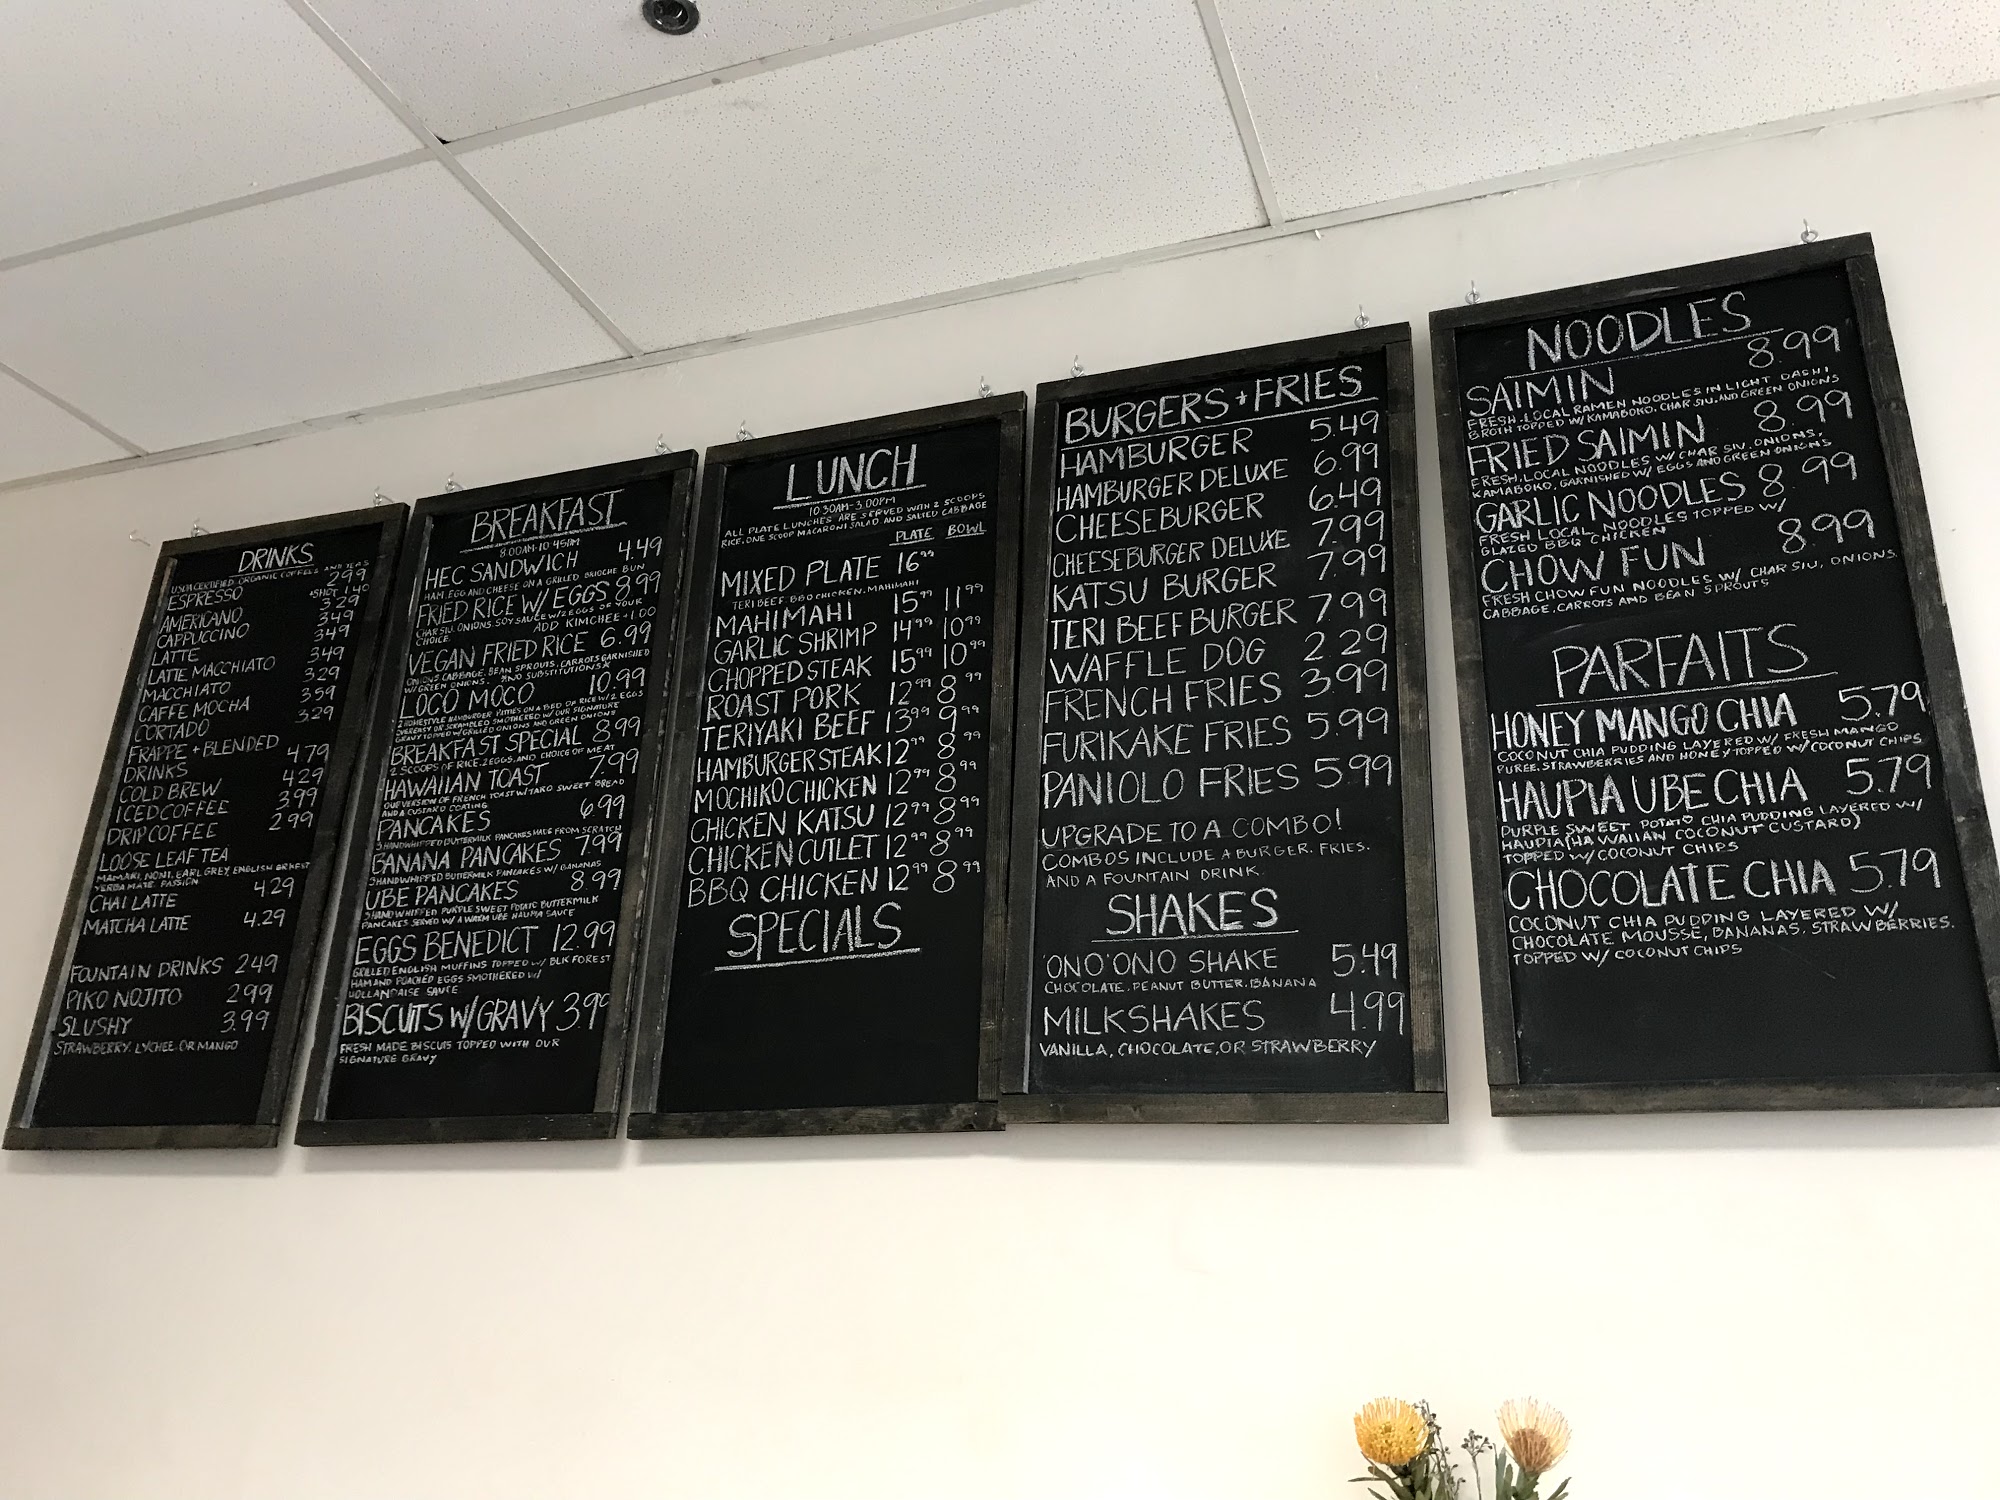 DRINKS
USDA CERTIFIED ORGANIC COFFEES AND TEAS
ESPRESSO 2.99
+SHOT 1.40
AMERICANO 3.29
CAPPUCCINO 3.49
LATTE 3.49
LATTE MACCHIATO 3.49
MACCHIATO 3.29
CAFFE MOCHA 3.59
CORTADO 3.29
FRAPPE + BLENDED
DRINKS 4.79
COLD BREW 4.29
ICED COFFEE 3.99
DRIP COFFEE 2.99
LOOSE LEAF TEA
MAMAKI, NONI, EARL GREY, ENGLISH BRKFST
YERBA MATE, PASSION
CHAI LATTE 4.29
MATCHA LATTE 4.29
FOUNTAIN DRINKS 2.49
PIKO NOJITO 2.99
SLUSHY 3.99
STRAWBERRY, LYCHEE, OR MANGO
BREAKFAST
8:00AM-10:45AM
HEC SANDWICH 4.49
HAM, EGG AND CHEESE ON A GRILLED BRIOCHE BUN
FRIED RICE W/ EGGS 8.99
CHAR SIU, ONIONS, SOY SAUCE W/ 2 EGGS OF YOUR
CHOICE ADD KIMCHEE +1.00
VEGAN FRIED RICE 6.99
ONIONS, CABBAGE, BEAN SPROUTS, CARROTS GARNISHED
W/ GREEN ONIONS. *NO SUBSTITUTIONS*
LOCO MOCO 10.99
2 HOMESTYLE HAMBURGER PATTIES ON A BED OF RICE W/ 2 EGGS
OVEREASY OR SCRAMBLED SMOTHERED W/ OUR SIGNATURE
GRAVY TOPPED W/ GRILLED ONIONS AND GREEN ONIONS
BREAKFAST SPECIAL 8.99
2 SCOOPS OF RICE, 2 EGGS, AND CHOICE OF MEAT
HAWAIIAN TOAST 7.99
OUR VERSION OF FRENCH TOAST W/ TARO SWEET BREAD
AND A CUSTARD COATING
PANCAKES 6.99
3 HANDWHIPPED BUTTERMILK PANCAKES MADE FROM SCRATCH
BANANA PANCAKES 7.99
3 HANDWHIPPED BUTTERMILK PANCAKES W/ BANANAS
UBE PANCAKES 8.99
3 HANDWHIPPED PURPLE SWEET POTATO BUTTERMILK
PANCAKES SERVED W/ A WARM UBE HAUPIA SAUCE
EGGS BENEDICT 12.99
GRILLED ENGLISH MUFFINS TOPPED W/ BLK FOREST
HAM AND POACHED EGGS SMOTHERED W/
HOLLANDAISE SAUCE
BISCUITS W/ GRAVY 3.99
FRESH MADE BISCUIS TOPPED WITH OUR
SIGNATURE GRAVY
LUNCH
10:30AM-3:00PM
ALL PLATE LUNCHES ARE SERVED WITH 2 SCOOPS
RICE, ONE SCOOP MACARONI SALAD AND SALTED CABBAGE
PLATE BOWL
MIXED PLATE 16.99
TERI BEEF, BBQ CHICKEN, MAHIMAHI
MAHIMAHI 15.99 11.99
GARLIC SHRIMP 14.99 10.99
CHOPPED STEAK 15.99 10.99
ROAST PORK 12.99 8.99
TERIYAKI BEEF 13.99 9.99
HAMBURGER STEAK 12.99 8.99
MOCHIKO CHICKEN 12.99 8.99
CHICKEN KATSU 12.99 8.99
CHICKEN CUTLET 12.99 8.99
BBQ CHICKEN 12.99 8.99
SPECIALS
BURGERS + FRIES
HAMBURGER 5.49
HAMBURGER DELUXE 6.99
CHEESEBURGER 6.49
CHEESEBURGER DELUXE 7.99
KATSU BURGER 7.99
TERI BEEF BURGER 7.99
WAFFLE DOG 2.29
FRENCH FRIES 3.99
FURIKAKE FRIES 5.99
PANIOLO FRIES 5.99
UPGRADE TO A COMBO!
COMBOS INCLUDE A BURGER, FRIES,
AND A FOUNTAIN DRINK.
SHAKES
'ONO'ONO SHAKE 5.49
CHOCOLATE, PEANUT BUTTER, BANANA
MILKSHAKES 4.99
VANILLA, CHOCOLATE, OR STRAWBERRY
NOODLES
SAIMIN 8.99
FRESH, LOCAL RAMEN NOODLES IN LIGHT DASHI
BROTH TOPPED W/ KAMABOKO, CHAR SIU, AND GREEN ONIONS
FRIED SAIMIN 8.99
FRESH, LOCAL NOODLES W/ CHAR SIU, ONIONS,
KAMABOKO, GARNISHED W/ EGGS AND GREEN ONIONS
GARLIC NOODLES 8.99
FRESH LOCAL NOODLES TOPPED W/
GLAZED BBQ CHICKEN
CHOW FUN 8.99
FRESH CHOW FUN NOODLES W/ CHAR SIU, ONIONS,
CABBAGE, CARROTS AND BEAN SPROUTS
PARFAITS
HONEY MANGO CHIA 5.79
COCONUT CHIA PUDDING LAYERED W/ FRESH MANGO
PUREE, STRAWBERRIES AND HONEY TOPPED W/ COCONUT CHIPS
HAUPIA UBE CHIA 5.79
PURPLE SWEET POTATO CHIA PUDDING LAYERED W/
HAUPIA (HAWAIIAN COCONUT CUSTARD)
TOPPED W/ COCONUT CHIPS
CHOCOLATE CHIA 5.79
COCONUT CHIA PUDDING LAYERED W/
CHOCOLATE MOUSSE, BANANAS, STRAWBERRIES.
TOPPED W/ COCONUT CHIPS